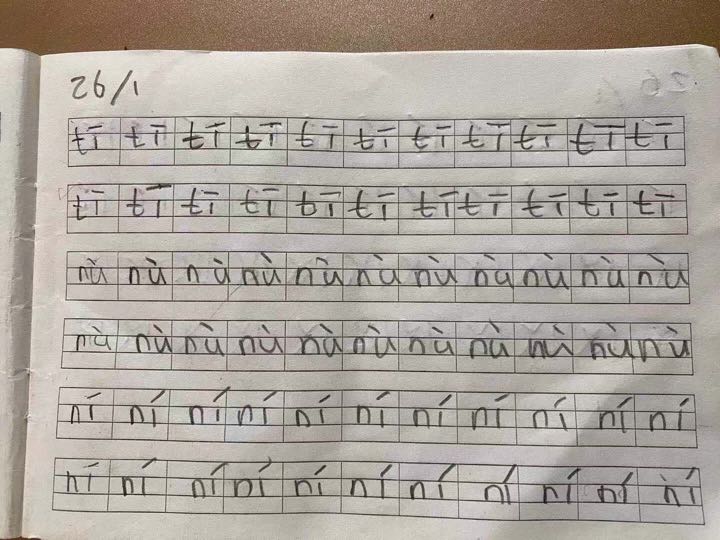 26/1
tī tī tī tī tī tī tī tī tī tī tī
tī tī tī tī tī tī tī tī tī tī tī
nù nù nù nù nù nù nù nù nù nù nù
nù nù nù nù nù nù nù nù nù nù nù
ní ní ní ní ní ní ní ní ní ní ní
ní ní ní ní ní ní ní ní ní ní ní